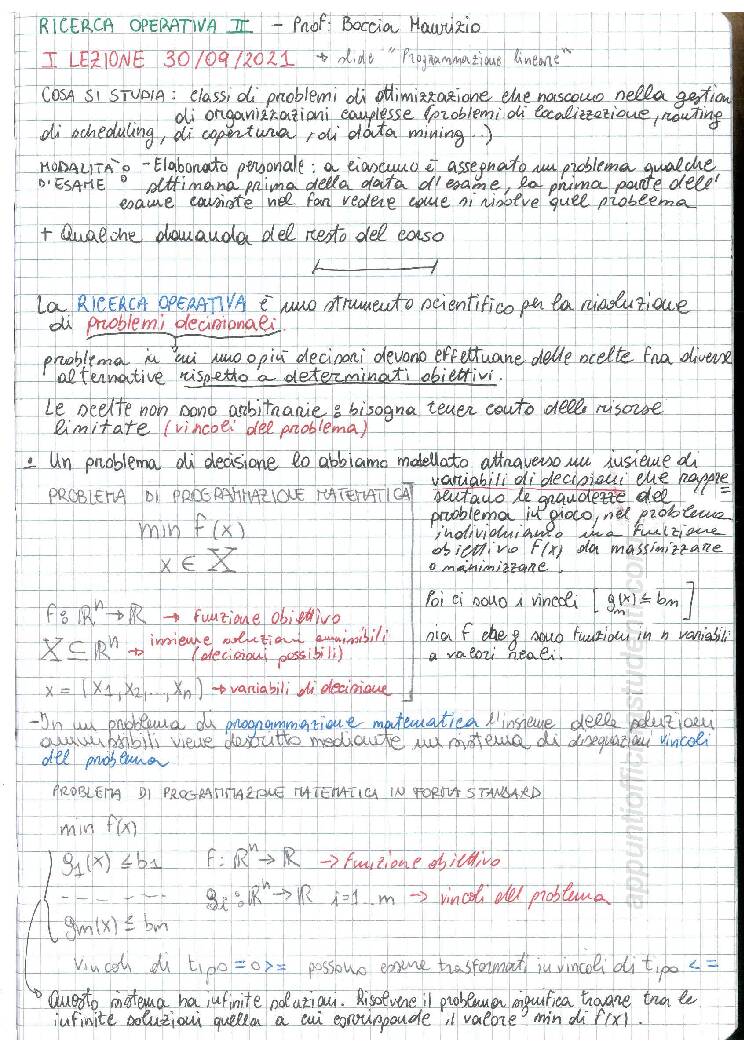 RICERCA OPERATIVA II - Prof: Boccia Maurizio
I LEZIONE 30/09/2021 → slide "Programmazione lineare"
COSA SI STUDIA : classi di problemi di ottimizzazione che nascono nella gestion
di organizzazioni complesse (problemi di localizzazione, routing
di scheduling, di copertura, di data mining..)
MODALITÀ - Elaborato personale : a ciascuno è assegnato un problema qualche
D'ESAME : settimana prima della data d'esame, la prima parte dell'
esame consiste nel far vedere come si risolve quel problema
+ Qualche domanda del resto del corso
La RICERCA OPERATIVA è uno strumento scientifico per la risoluzione
di problemi decisionali.
problema in cui uno o più decisori devono effettuare delle scelte fra diverse
alternative rispetto a determinati obiettivi.
Le scelte non sono arbitrarie : bisogna tener conto delle risorse
limitate (vincoli del problema)
• Un problema di decisione lo abbiamo modellato attraverso un insieme di
variabili di decisioni che rappre
PROBLEMA DI PROGRAMMAZIONE MATEMATICA
sentano le grandezze del
problema in gioco, nel problema
min f(x)
individuiamo una funzione
obiettivo f(x) da massimizzare
x ∈ X
o minimizzare.
Poi ci sono i vincoli [gm(x) ≤ bm]
f: ℝⁿ → ℝ → funzione obiettivo
sia f che g sono funzioni in n variabili
X ⊆ ℝⁿ → insieme soluzioni ammissibili
(decisioni possibili)
a valori reali.
x = (x1, x2, ..., xn) → variabili di decisione
- In un problema di programmazione matematica l'insieme delle soluzioni
ammissibili viene descritto mediante un sistema di disequazioni vincoli
del problema
PROBLEMA DI PROGRAMMAZIONE MATEMATICA IN FORMA STANDARD
min f(x)
g1(x) ≤ b1 f: ℝⁿ → ℝ → funzione obiettivo
- - - - - - gi: ℝⁿ → ℝ i=1...m → vincoli del problema
gm(x) ≤ bm
Vincoli di tipo = o >= possono essere trasformati in vincoli di tipo <=
Questo sistema ha infinite soluzioni. Risolvere il problema significa trovare tra le
infinite soluzioni quella a cui corrisponde il valore min di f(x).